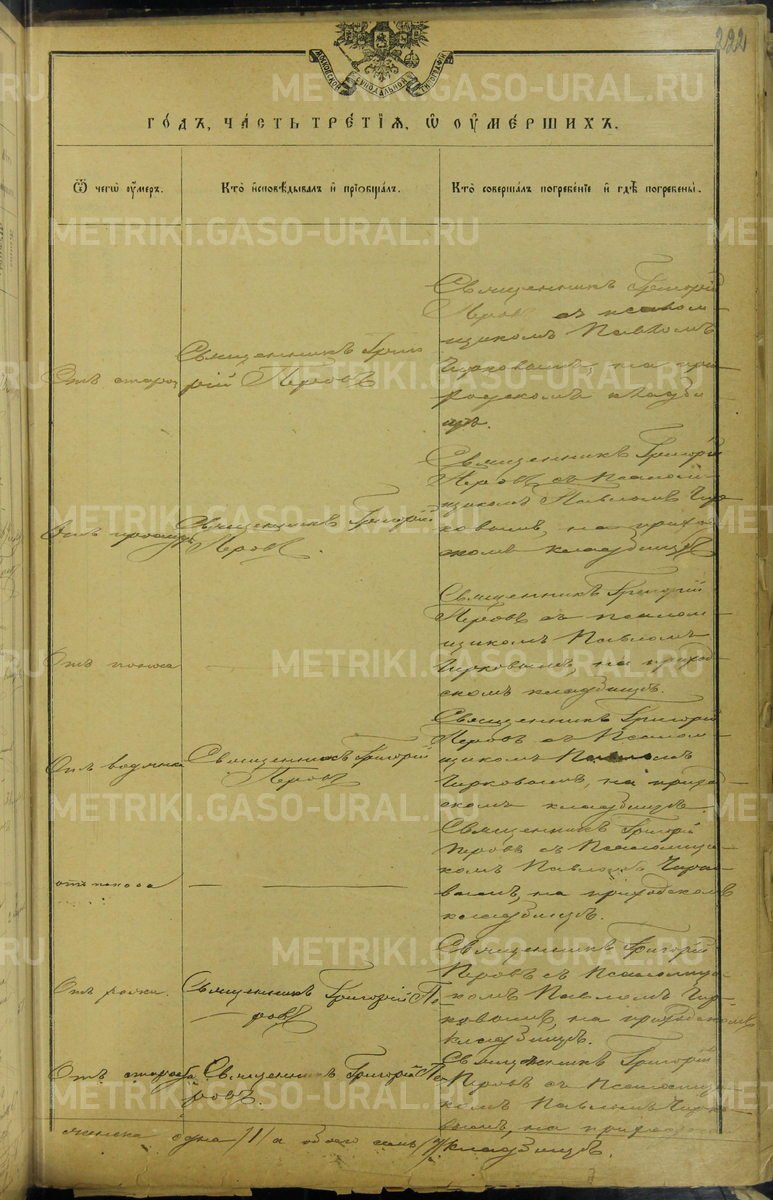 222
МОСКОВСКОЙ СѴНОДАЛЬНОЙ ТИПОГРАФІИ
METRIKI.GASO-URAL.RU
ГО́ДЪ, ЧА́СТЬ ТРЕ́ТІѦ, Ѡ ОУМЕ́РШИХЪ.
Ѿ чегѡ̀ оу́меръ.
Кто̀ и҆сповѣ́дывалъ и҆ пріѻбща́лъ.
Кто̀ соверша́лъ погребе́ніе и҆ гдѣ̀ погребены̀.
Отъ старос
Священникъ Григо
рій Перовъ
Священникъ Григорій
Перов съ псалом-
щикомъ Павломъ
Чирковымъ, на при
ходскомъ кладби
щѣ.
Отъ простуды
Священникъ Григорій
Перовъ.
Священникъ Григорій
Перовъ съ Псаломъ
щикомъ Павломъ Чир
ковымъ, на приход
скомъ кладбищѣ
Отъ поноса
Священникъ Григорій
Перовъ съ псалом-
щикомъ Павломъ
Чирковымъ, на приход
скомъ кладбищѣ.
Отъ водянки
Священникъ Григорій
Перовъ
Священникъ Григорій
Перовъ съ Псалом-
щикомъ Павломъ
Чирковымъ, на приход-
скомъ кладбищѣ.
отъ поноса
Священникъ Григорій
Перовъ съ Псаломщи-
комъ Павломъ Чирко-
вымъ, на приходскомъ
кладбищѣ.
Отъ
Священникъ Григорій Пе-
ровъ
Священникъ Григорій
Перовъ съ Псаломщи-
комъ Павломъ Чир-
ковымъ, на приходскомъ
кладбищѣ.
Отъ старости
Священникъ Григорій Пе-
ровъ.
Священникъ Григорій
Перовъ съ Псаломщи
комъ Павломъ Чирко-
вымъ, на приходском
кладбищѣ.
женска одна /1/ а обоего пола